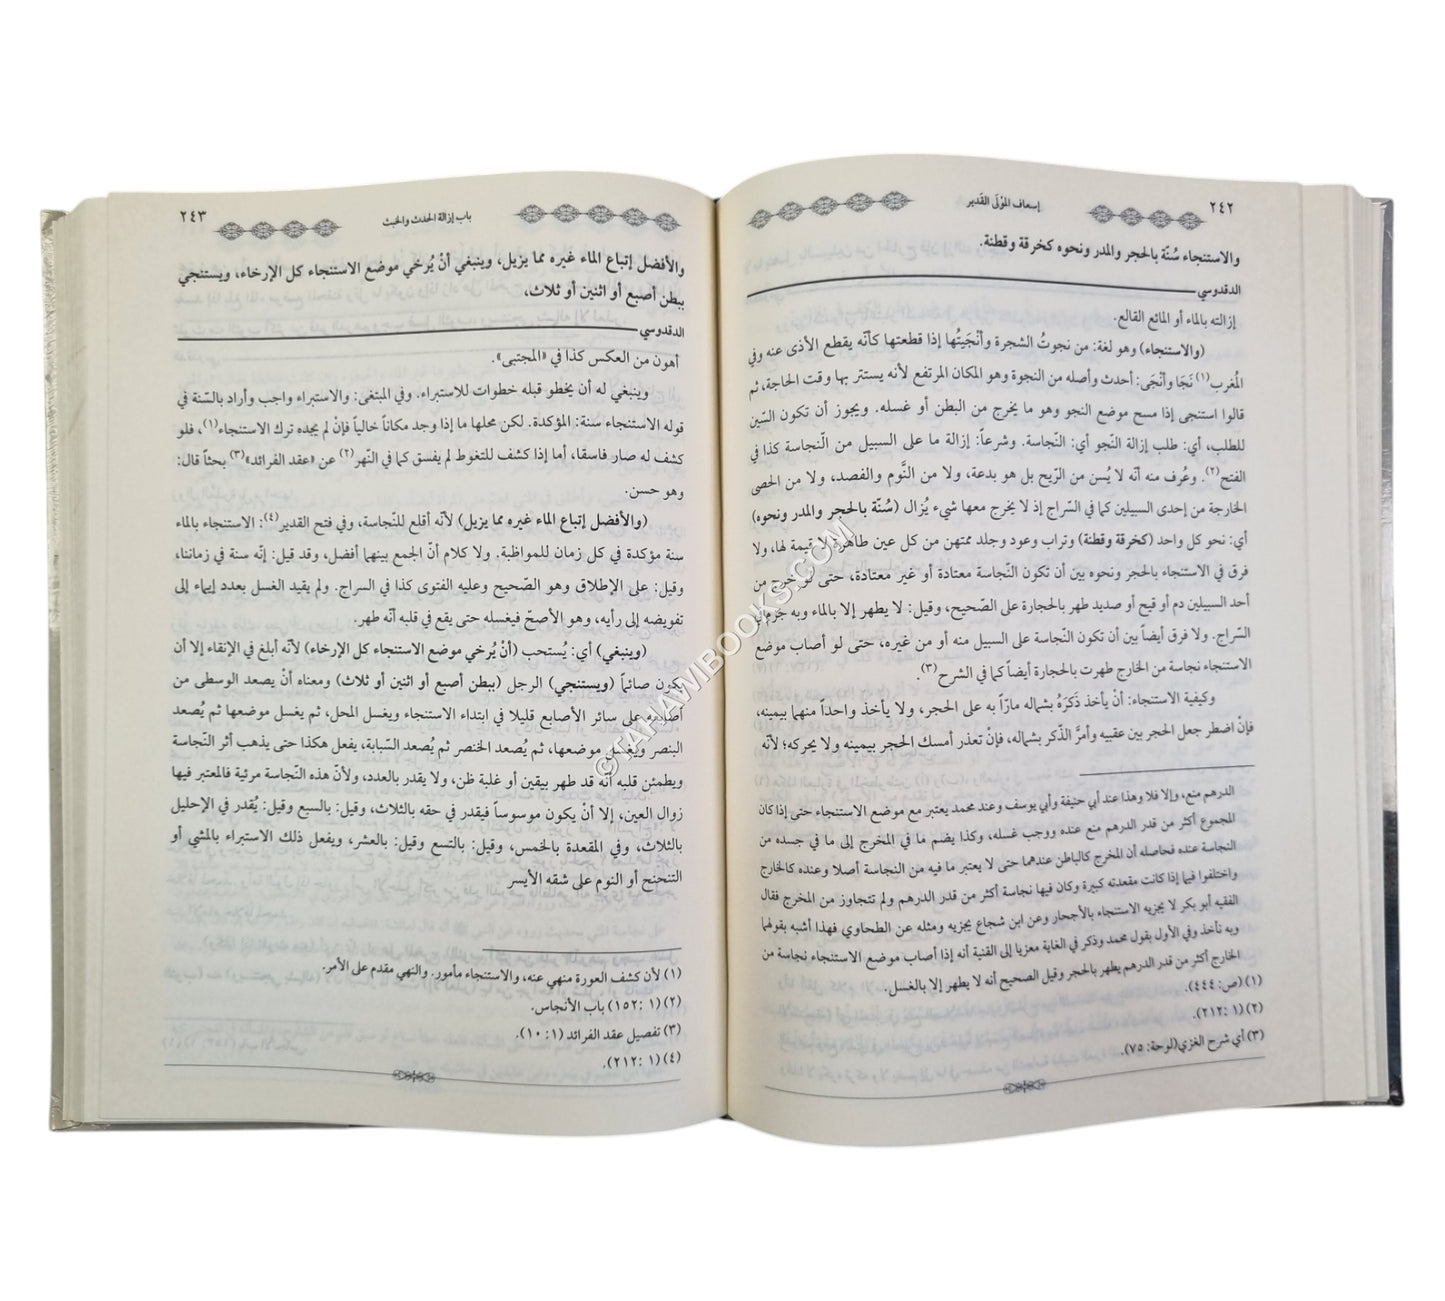 ٢٤٢
إسعاف المؤلى القدير
والاستنجاء سُنّة بالحجر والمدر ونحوه كخرقة وقطنة.
الدقدوسي
إزالته بالماء أو المائع القالع.
(والاستنجاء) وهو لغة: من نجوتُ الشجرة وأنْجَيتُها إذا قطعتها كأنّه يقطع الأذى عنه وفي
المُغرب(١) نَجَا وأنْجَى: أحدث وأصله من النجوة وهو المكان المرتفع لأنه يستتر بها وقت الحاجة، ثم
قالوا استنجى إذا مسح موضع النجو وهو ما يخرج من البطن أو غسله. ويجوز أن تكون السّين
للطلب، أي: طلب إزالة النّجو أي: النّجاسة. وشرعاً: إزالة ما على السبيل من النّجاسة كذا في
الفتح(٢). وعُرف منه أنّه لا يُسن من الرّيح بل هو بدعة، ولا من النَّوم والفصد، ولا من الحصى
الخارجة من إحدى السبيلين كما في السّراج إذ لا يخرج معها شيء يُزال (سُنّة بالحجر والمدر ونحوه)
أي: نحو كل واحد (كخرقة وقطنة) وتراب وعود وجلد ممتهن من كل عين طاهرة لا قيمة لها، ولا
فرق في الاستنجاء بالحجر ونحوه بين أن تكون النّجاسة معتادة أو غير معتادة، حتى لو خرج من
أحد السبيلين دم أو قيح أو صديد طهر بالحجارة على الصّحيح، وقيل: لا يطهر إلا بالماء وبه جزم في
السّراج. ولا فرق أيضاً بين أن تكون النّجاسة على السبيل منه أو من غيره، حتى لو أصاب موضع
الاستنجاء نجاسة من الخارج طهرت بالحجارة أيضاً كما في الشرح(٣).
وكيفية الاستنجاء: أنْ يأخذ ذَكَرَهُ بشماله مارّاً به على الحجر، ولا يأخذ واحداً منهما بيمينه،
فإنْ اضطر جعل الحجر بين عقبيه وأمرَّ الذّكر بشماله، فإنْ تعذر أمسك الحجر بيمينه ولا يحركه؛ لأنّه
الدرهم منع، وإلا فلا وهذا عند أبي حنيفة وأبي يوسف وعند محمد يعتبر مع موضع الاستنجاء حتى إذا كان
المجموع أكثر من قدر الدرهم منع عنده ووجب غسله، وكذا يضم ما في المخرج إلى ما في جسده من
النجاسة عنده فحاصله أن المخرج كالباطن عندهما حتى لا يعتبر ما فيه من النجاسة أصلا وعنده كالخارج
واختلفوا فيما إذا كانت مقعدته كبيرة وكان فيها نجاسة أكثر من قدر الدرهم ولم تتجاوز من المخرج فقال
الفقيه أبو بكر لا يجزيه الاستنجاء بالأحجار وعن ابن شجاع يجزيه ومثله عن الطحاوي فهذا أشبه بقولهما
وبه نأخذ وفي الأول بقول محمد وذكر في الغاية معزيا إلى القنية أنه إذا أصاب موضع الاستنجاء نجاسة من
الخارج أكثر من قدر الدرهم يطهر بالحجر وقيل الصحيح أنه لا يطهر إلا بالغسل.
(١) (ص: ٤٤٤).
(٢) (١: ٢١٢).
(٣) أي شرح الغزي(لوحة: ٧٥).
باب إزالة الحدث والخبث
٢٤٣
والأفضل إتباع الماء غيره مما يزيل، وينبغي أنْ يُرخي موضع الاستنجاء كل الإرخاء، ويستنجي
ببطن أصبع أو اثنين أو ثلاث،
الدقدوسي
أهون من العكس كذا في «المجتبى».
وينبغي له أن يخطو قبله خطوات للاستبراء. وفي المبتغى: والاستبراء واجب وأراد بالسّنة في
قوله الاستنجاء سنة: المؤكدة. لكن محلها ما إذا وجد مكاناً خالياً فإنْ لم يجده ترك الاستنجاء(١)، فلو
كشف له صار فاسقا، أما إذا كشف للتغوط لم يفسق كما في النّهر(٢) عن «عقد الفرائد»(٣) بحثاً قال:
وهو حسن.
(والأفضل إتباع الماء غيره مما يزيل) لأنّه أقلع للنّجاسة، وفي فتح القدير(٤): الاستنجاء بالماء
سنة مؤكدة في كل زمان للمواظبة. ولا كلام أنّ الجمع بينهما أفضل، وقد قيل: إنّه سنة في زماننا،
وقيل: على الإطلاق وهو الصّحيح وعليه الفتوى كذا في السراج. ولم يقيد الغسل بعدد إيماء إلى
تفويضه إلى رأيه، وهو الأصحّ فيغسله حتى يقع في قلبه أنّه طهر.
(وينبغي) أي: يُستحب (أنْ يُرخي موضع الاستنجاء كل الإرخاء) لأنّه أبلغ في الإنقاء إلا أن
يكون صائماً (ويستنجي) الرجل (ببطن أصبع أو اثنين أو ثلاث) ومعناه أنْ يصعد الوسطى من
أصابعه على سائر الأصابع قليلا في ابتداء الاستنجاء ويغسل المحل، ثم يغسل موضعها ثم يُصعد
البنصر ويغسل موضعها، ثم يُصعد الخنصر ثم يُصعد السّبابة، يفعل هكذا حتى يذهب أثر النّجاسة
ويطمئن قلبه أنّه قد طهر بيقين أو غلبة ظن، ولا يقدر بالعدد، ولأنّ هذه النّجاسة مرئية فالمعتبر فيها
زوال العين، إلا أنْ يكون موسوساً فيقدر في حقه بالثلاث، وقيل: بالسبع وقيل: يُقدر في الإحليل
بالثلاث، وفي المقعدة بالخمس، وقيل: بالتسع وقيل: بالعشر، ويفعل ذلك الاستبراء بالمشي أو
التنحنح أو النوم على شقه الأيسر
(١) لأن كشف العورة منهي عنه، والاستنجاء مأمور. والنهي مقدم على الأمر.
(٢) (١: ١٥٢) باب الأنجاس.
(٣) تفصيل عقد الفرائد (١: ١٠).
(٤) (١: ٢١٢).
©TAHAWIBOOKS.COM